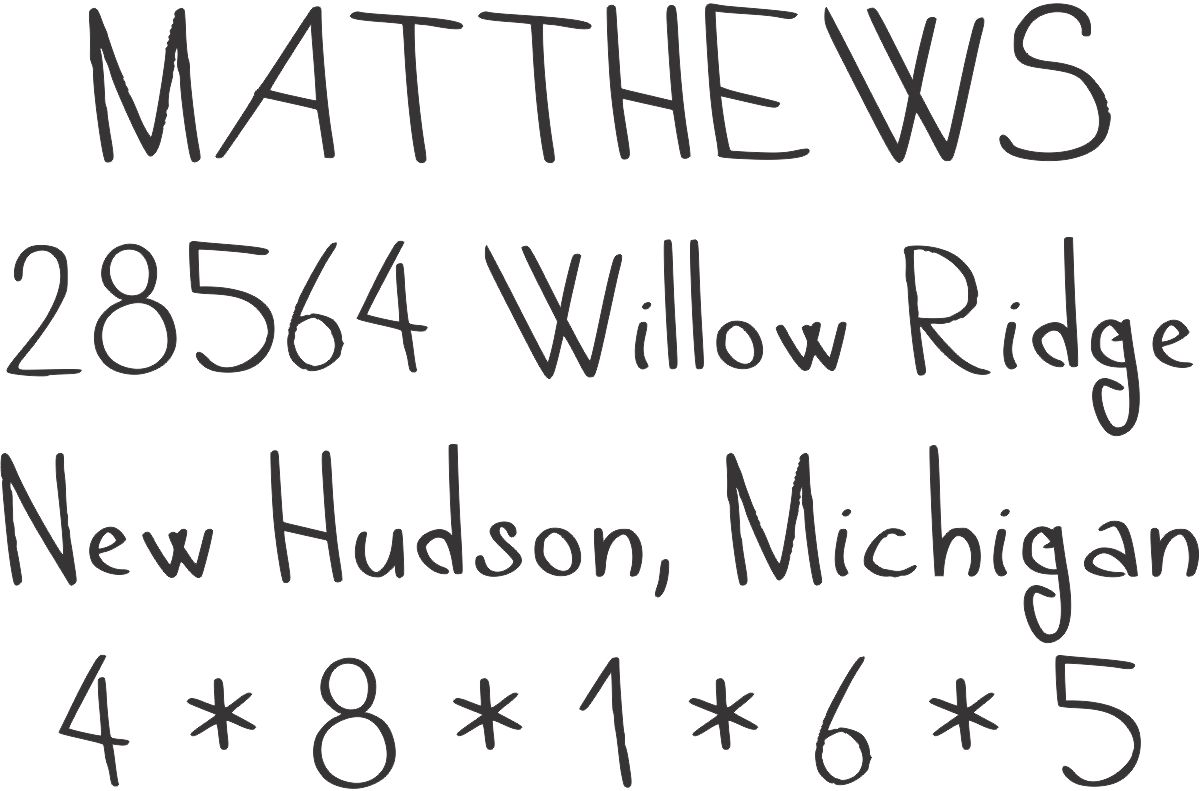 MATTHEWS
28564 Willow Ridge
New Hudson, Michigan
4 * 8 * 1 * 6 * 5